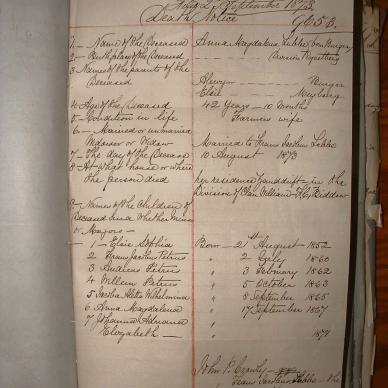 September 1873
Death Notice 9653.
1 - Name of the Deceased Anna Magdalena Lubbe born Burger
2 - Birthplace of the Deceased
3 Names of the parents of the
Deceased Burger
Elsie
4 Age of the Deceased 42 Years - 10 Months
5 - Condition in life Farmers wife
6 - Married or unmarried
Widower or Widow Married to Frans Lubbe
7 - The day of the Decease 10 August 1873
8 - At what house or where
the person died her residence in the
Division of Clan William
9 - Names of the Children of
Deceased and whether Minors
or Majors -
- 1 - Elsie Sophia Born - 21st August - 1852
2 Frans Jacobus Petrus " 2 July 1860
3 Andries Petrus " 3 February 1862
4 Willem Petrus " 5 October 1863
5 Wilhelmina " 8 September 1865
6 Anna Magdalena " 17 September 1867
7 Johanna Adriana
Elizabeth - " 1871
John P.
Frans Lubbe - the